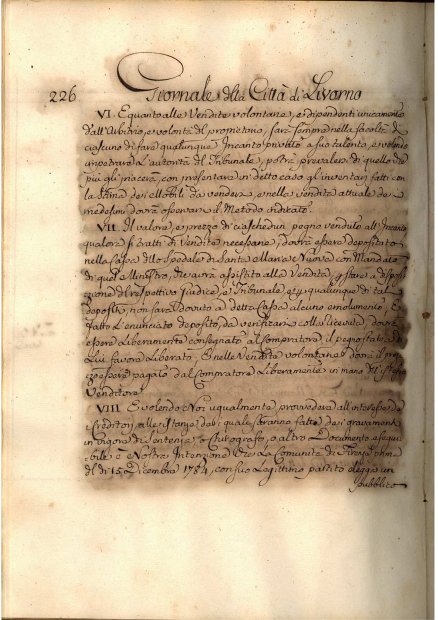 226 Giornale della Città di Livorno
VI. E quanto alle Vendite volontarie, e dipendenti unicamente
dall'Arbitrio, e volontà del proprietario, sarà sempre nella facoltà di
ciascuno di fare qualunque Incanto privato a suo talento, e volendo
impetrare l'autorità del Tribunale, potrà prevalersi di quello che
più gli piacerà, con presentare in detto caso gl'inventarj fatti con
la stima dei Mobili da vendersi, e nella vendita attuale de
medesimi dovrà osservarsi il Metodo indicato.
VII. Il valore, e prezzo di ciaschedun pegno venduto all'Incanto
qualora si tratti di Vendite necessarie, dovrà essere depositato
nella Cassa dello Spedale di Santa Maria Nuova con Mandato
di quel Ministro, che avrà assistito alla Vendita, per stare a disposi
zione del respettivo Giudice, e Tribunale, e per qualunque di tali
depositi, non sarà dovuto a detta Cassa alcuno emolumento, E
fatto l'enunciato deposito, da verificarsi colla ricevuta, dovrà
essere Liberamente consegnato al Compratore il pegno stato a
Lui favore Liberato, E nelle Vendite volontarie dovrà il prez
zo essere pagato dal Compratore Liberamente in mano del
Venditore.
VIII. E volendo Noi ugualmente provvedere all'interesse de
Creditori, alle Istanze dei quali saranno fatti dei gravamenti
in vigore di Sentenza, o Chirografo, o altro Documento esegui
bile è Nostra Intenzione che La Comunità di Firenze
del dì 15. Dicembre 1784, con suo Legittimo partito elegga un
pubblico